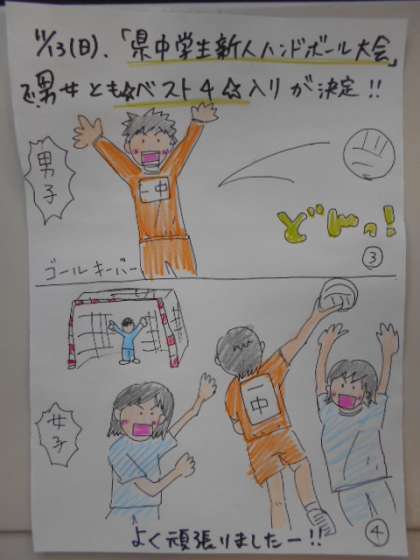 11/13(日)、「県中学生新人ハンドボール大会」
で男女とも☆ベスト4☆入りが決定!!
男子
一中
どーーっ!
ゴールキーパー
③
女子
一中
④
よく頑張りましたー!!